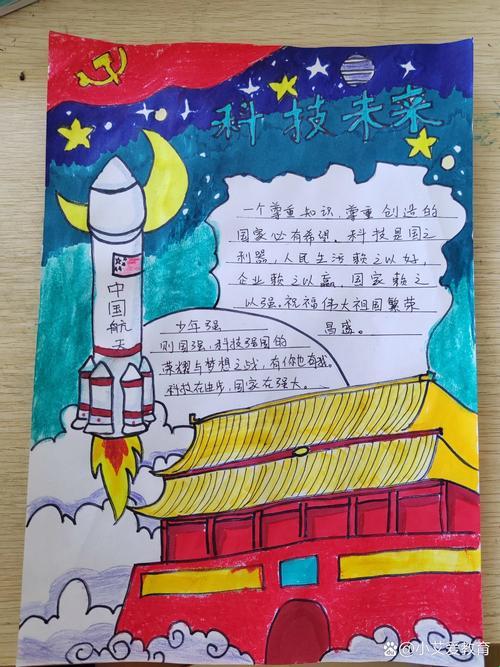 科技未来
一个尊重知识,尊重创造的
国家必有希望。科技是国之
利器,人民生活赖之以好,
企业赖之以赢,国家赖之
以强。祝福伟大祖国繁荣
昌盛。
中国航天
少年强
则国强,科技强国的
荣耀与梦想之战,有你也有我。
科技在进步,国家在强大。
小艾爱教育